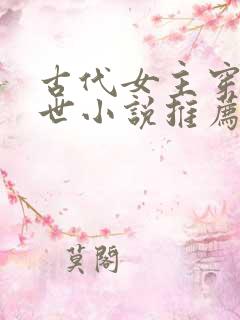 古代女主穿
世小说推薦
莫閣